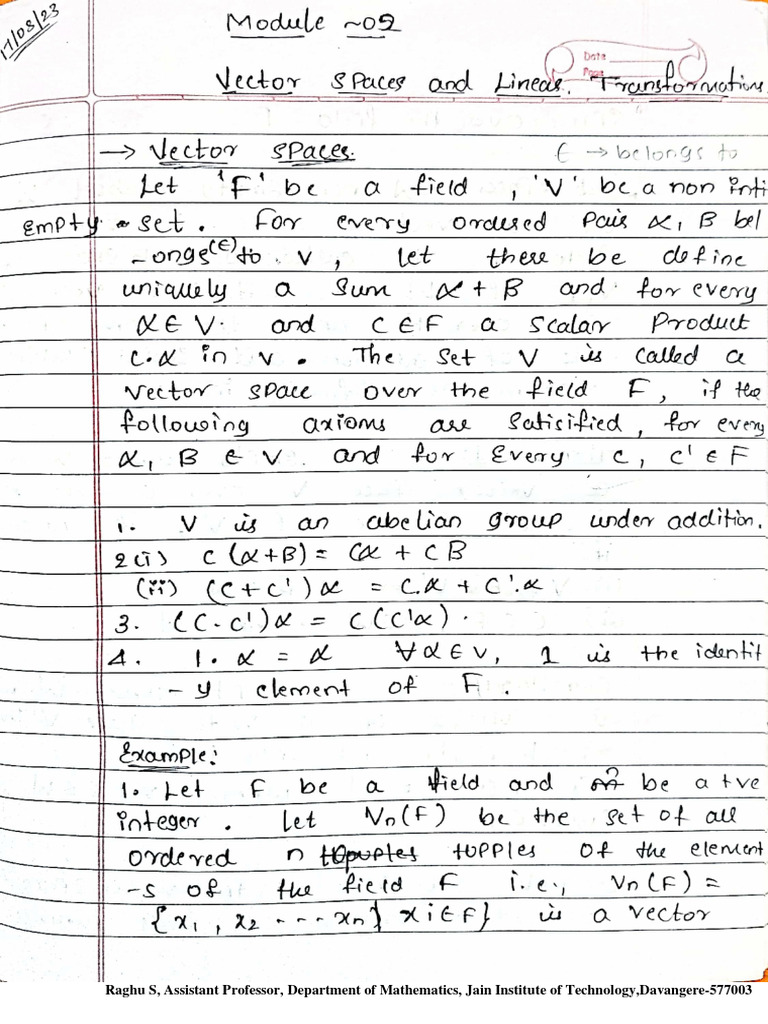 17/08/23
Module ~02
Date
Page
Vector spaces and Linear Transformations
→ Vector spaces. ∈ → belongs to
Let 'F' be a field, 'V' be a non
empty set. For every ordered pair α, B bel
-ongs(∈) to V, let there be define
uniquely a sum α + B and for every
α ∈ V and C ∈ F a scalar product
C.α in V. The set V is called a
vector space over the field F, if the
following axioms are satisified, for every
α, B ∈ V and for every C, C' ∈ F
1. V is an abelian group under addition.
2(i) C (α+B) = Cα + CB
(ii) (C + C')α = C.α + C'.α
3. (C. C')α = C(C'α).
4. 1. α = α ∀ α ∈ V, 1 is the identit
-y element of F.
Example:
1. Let F be a field and be a +ve
integer. Let Vn(F) be the set of all
ordered n topples of the element
-s of the field F i.e., Vn(F) =
{x1, x2 ---- xn} xi ∈ F} is a vector
Raghu S, Assistant Professor, Department of Mathematics, Jain Institute of Technology,Davangere-577003